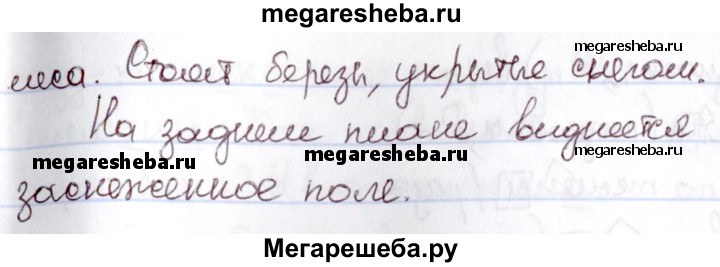 megaresheba.ru
megaresheba.ru
леса. Стоят березы, укрытые снегом.
megaresheba.ru
На заднем плане виднеется
megaresheba.ru megaresheba.ru megaresheba.ru
заснеженное поле.
Мегарешеба.ру